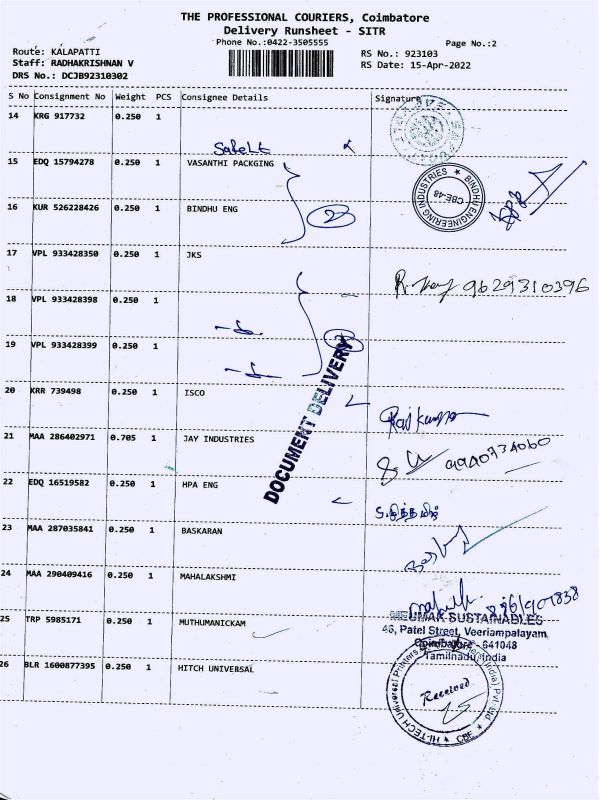 THE PROFESSIONAL COURIERS, Coimbatore
Delivery Runsheet - SITR
Phone No.:0422-3505555
Page No.:2
Route: KALAPATTI
Staff: RADHAKRISHNAN V
DRS No.: DCJB92310302
RS No.: 923103
RS Date: 15-Apr-2022
S No Consignment No Weight PCS Consignee Details Signature
14 KRG 917732 0.250 1
15 EDQ 15794278 0.250 1 VASANTHI PACKGING
16 KUR 526228426 0.250 1 BINDHU ENG
BINDHU ENGINEERING INDUSTRIES ★ CBE-48
17 VPL 933428350 0.250 1 JKS
9629310396
18 VPL 933428398 0.250 1
19 VPL 933428399 0.250 1
DOCUMENT DELIVERY
20 KRR 739498 0.250 1 ISCO
Rajkumar
21 MAA 286402971 0.705 1 JAY INDUSTRIES
9940734060
22 EDQ 16519582 0.250 1 HPA ENG
23 MAA 287035841 0.250 1 BASKARAN
24 MAA 290409416 0.250 1 MAHALAKSHMI
25 TRP 5985171 0.250 1 MUTHUMANICKAM
SUSTAINABLES
46, Patel Street, Veeriampalayam,
Coimbatore - 641048
Tamilnadu, India
26 BLR 1600877395 0.250 1 HITCH UNIVERSAL
HI-TECH Universal Printers (India) Pvt. Ltd ★ CBE ★
Received